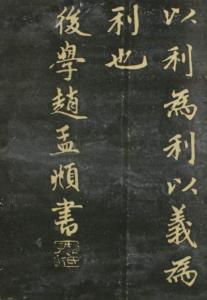 以利為利以義為
利也
後學趙孟頫書